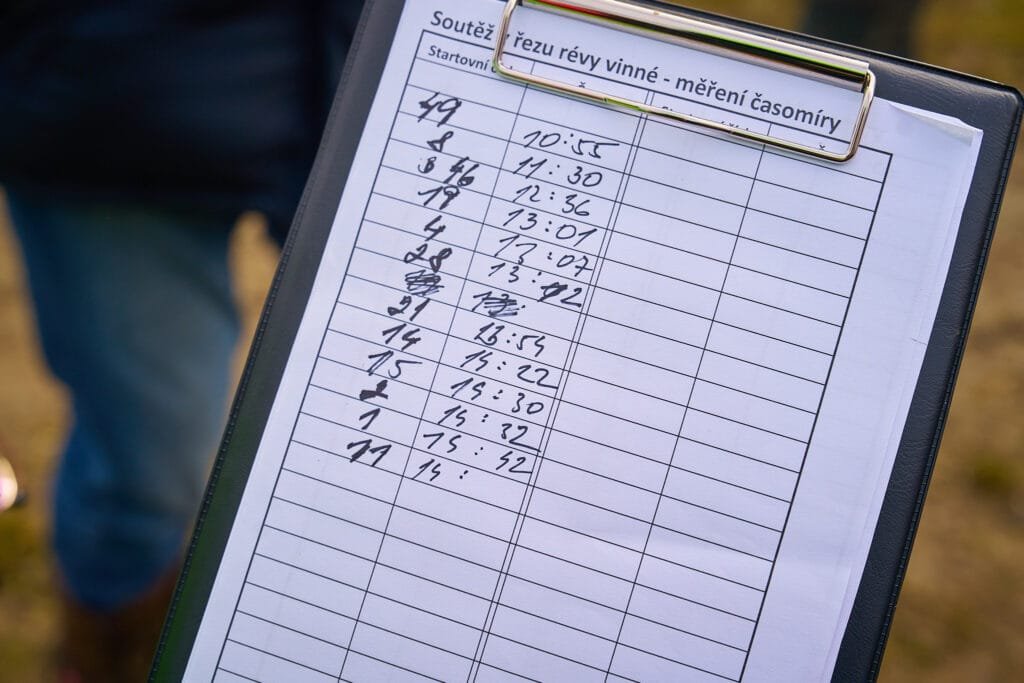 Soutěž řezu révy vinné - měření časomíry
Startovní
49 10:55
8 11:30
46 12:36
19 13:01
4 13:07
28 13:12
21 13:54
14 14:22
15 14:30
2 14:32
1 14:42
11 14: